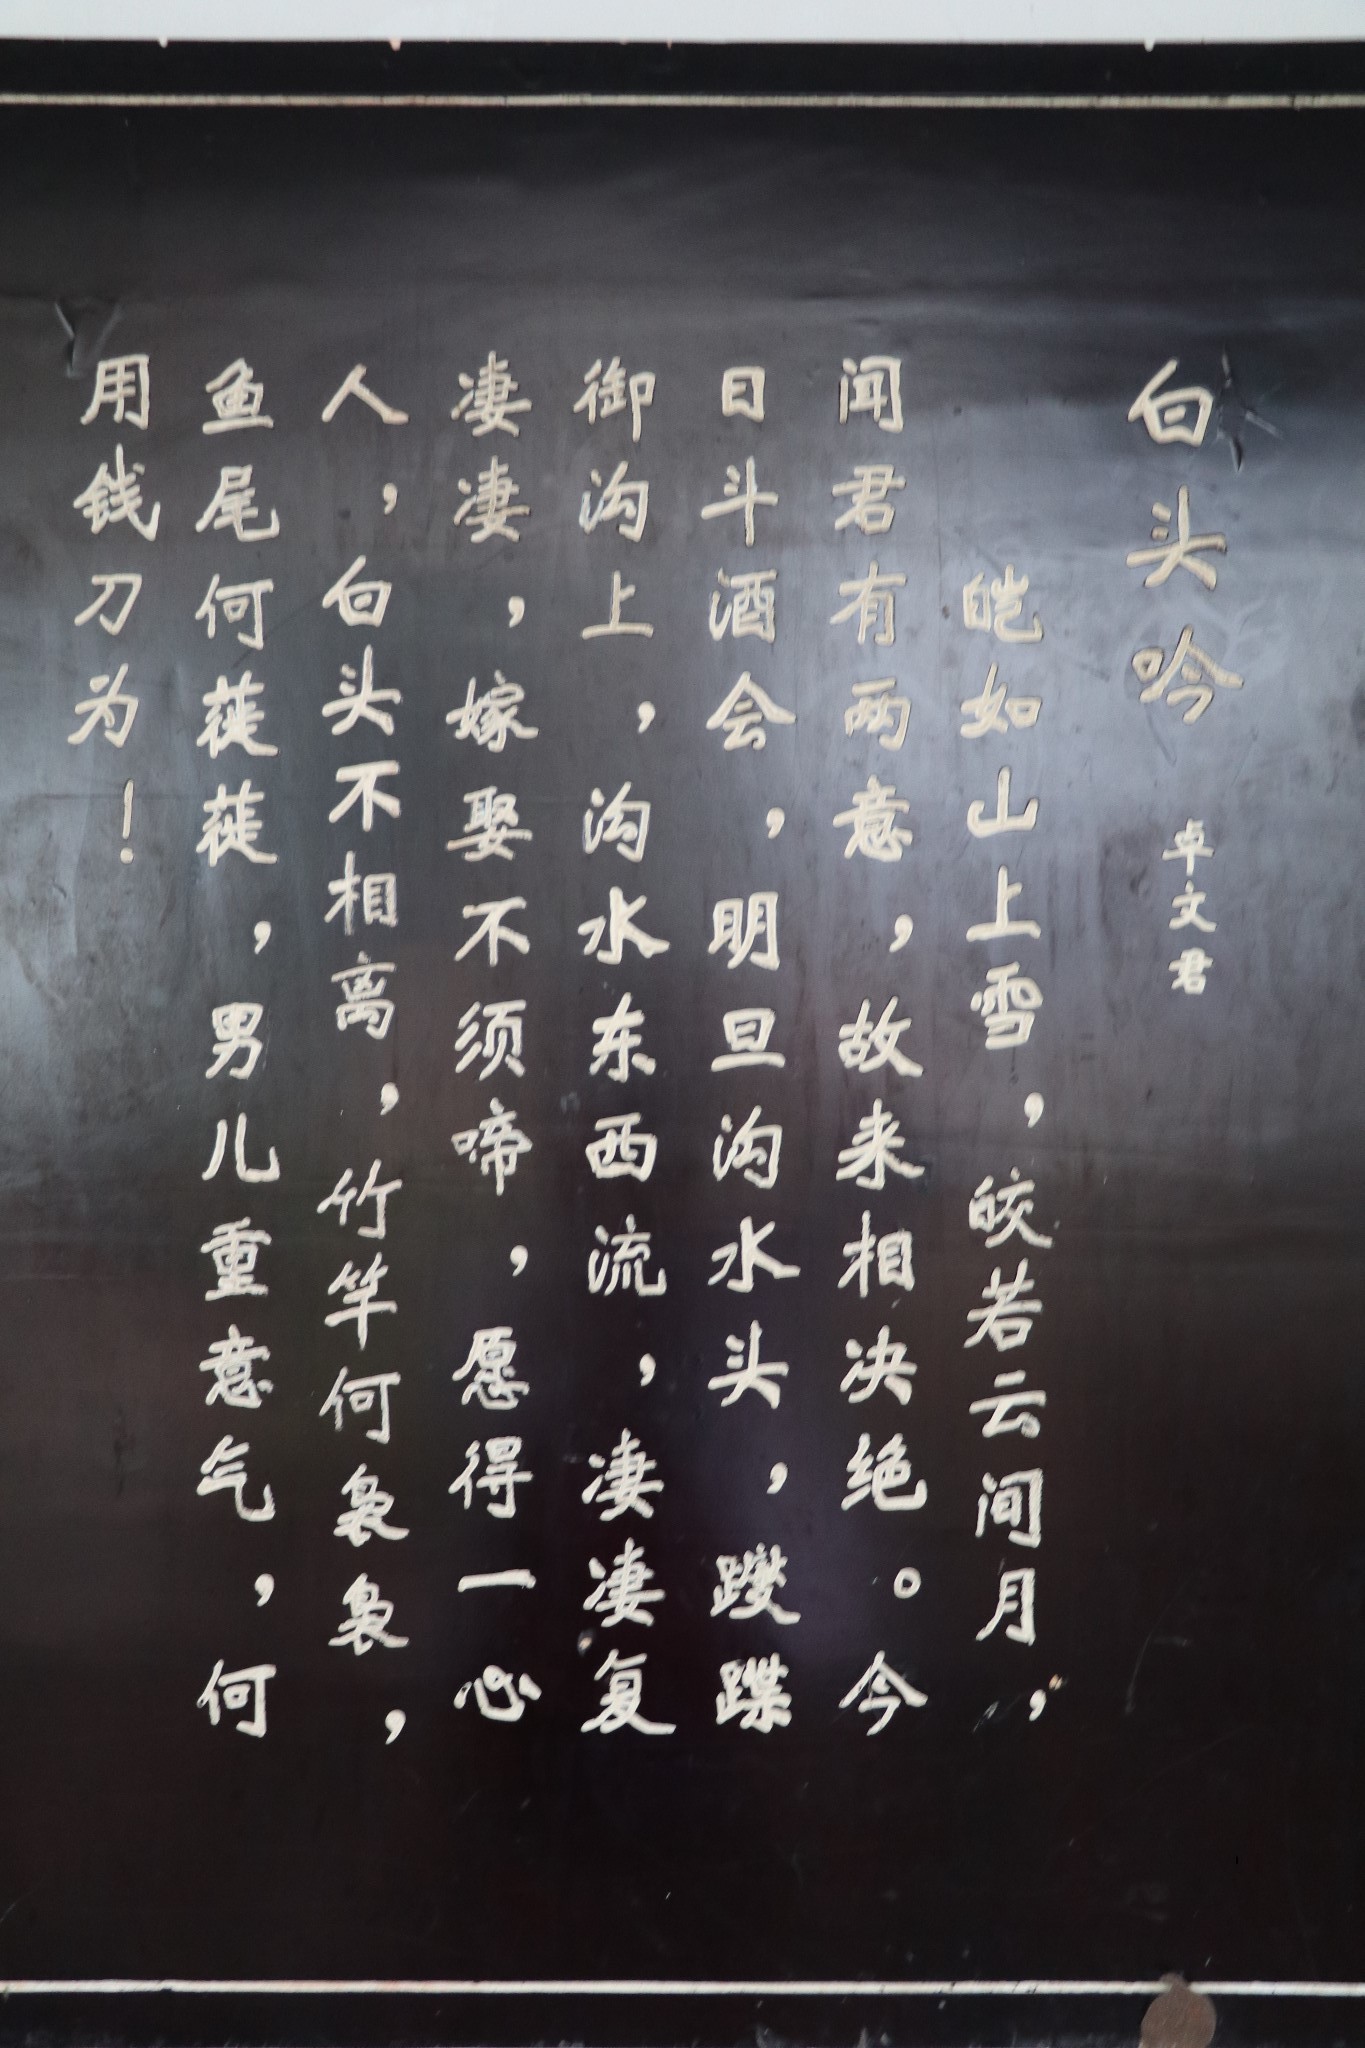 白头吟 卓文君
皑如山上雪，皎若云间月，
闻君有两意，故来相决绝。今
日斗酒会，明旦沟水头，躞蹀
御沟上，沟水东西流，凄凄复
凄凄，嫁娶不须啼，愿得一心
人，白头不相离，竹竿何袅袅，
鱼尾何蓰蓰，男儿重意气，何
用钱刀为！